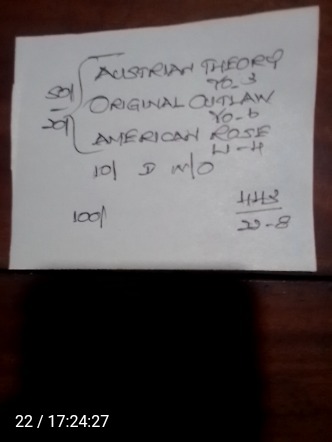 50/ AUSTRIAN THEORY
YO-3
20/ ORIGINAL OUTLAW
YO-6
AMERICAN ROSE
LI-4
10/ D W/O
100/
443
22-8
22 / 17:24:27